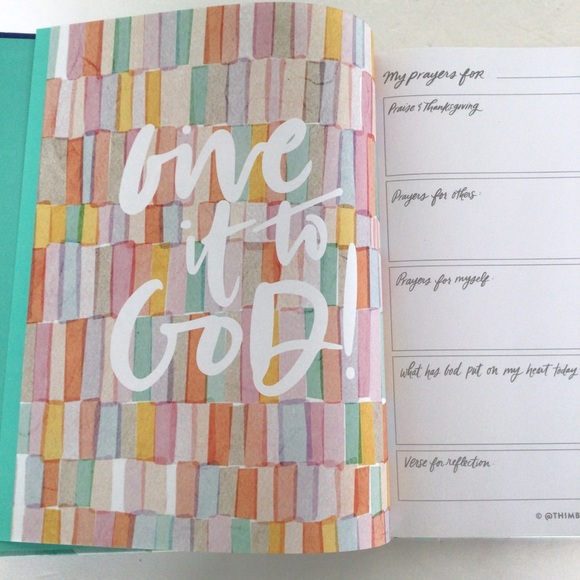 Give
it to
GOD!
My prayers for
Praise & Thanksgiving
Prayers for others:
Prayers for myself:
What has God put on my heart today
Verse for reflection
© @THIMB